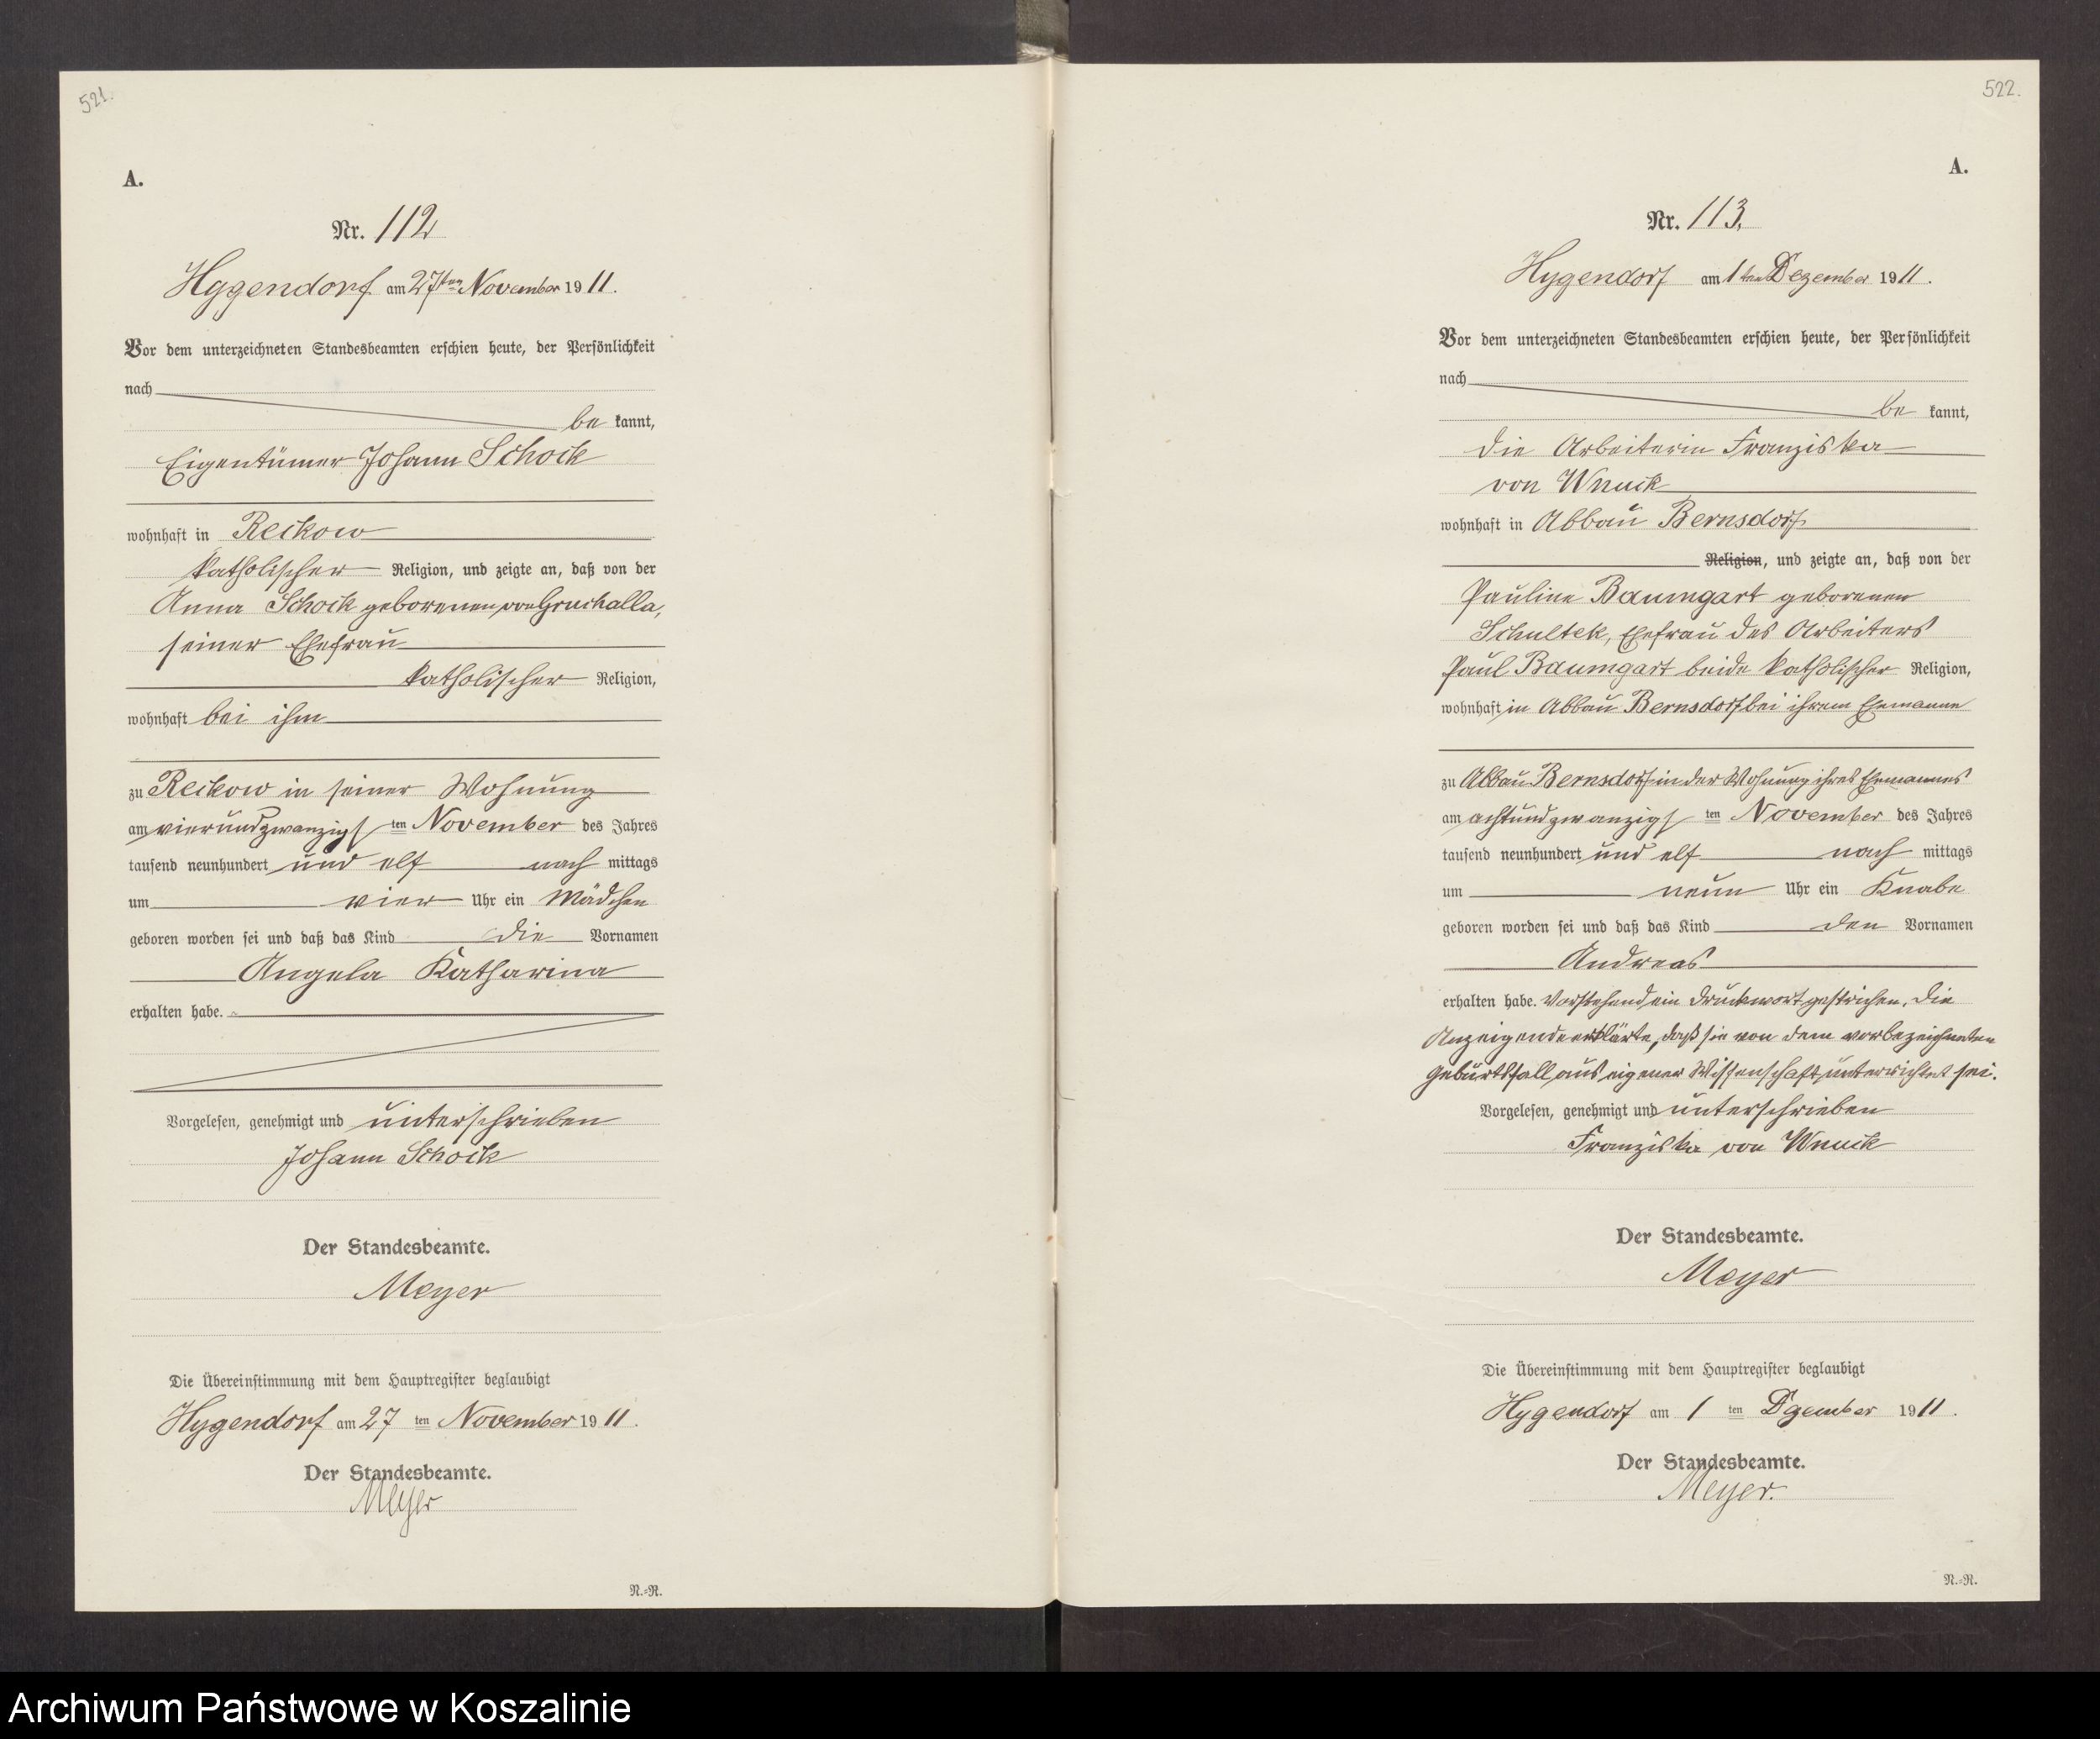 521.
A.
Nr. 112
Hygendorf am 27ten November 1911.
Vor dem unterzeichneten Standesbeamten erschien heute, der Persönlichkeit
nach
be kannt,
Eigentümer Johann Schock
wohnhaft in Reckow
katholischer Religion, und zeigte an, daß von der
Anna Schock geborenen von Gruchalla,
seiner Ehefrau
katholischer Religion,
wohnhaft bei ihm
zu Reckow in seiner Wohnung
am vierundzwanzigs ten November des Jahres
tausend neunhundert und elf nach mittags
um vier Uhr ein Mädchen
geboren worden sei und daß das Kind die Vornamen
Angela Katharina
erhalten habe.
Vorgelesen, genehmigt und unterschrieben
Johann Schock
Der Standesbeamte.
Meyer
Die Übereinstimmung mit dem Hauptregister beglaubigt
Hygendorf am 27 ten November 1911.
Der Standesbeamte.
Meyer
N.=R.
522.
A.
Nr. 113.
Hygendorf am 1ten Dezember 1911.
Vor dem unterzeichneten Standesbeamten erschien heute, der Persönlichkeit
nach
be kannt,
die Arbeiterin Franziska
von Wnuck
wohnhaft in Abbau Bernsdorf
Religion, und zeigte an, daß von der
Pauline Baumgart geborenen
Schultek, Ehefrau des Arbeiters
Paul Baumgart beide katholischer Religion,
wohnhaft in Abbau Bernsdorf bei ihrem Ehemanne
zu Abbau Bernsdorf in der Wohnung ihres Ehemannes
am achtundzwanzigs ten November des Jahres
tausend neunhundert und elf nach mittags
um neun Uhr ein Knabe
geboren worden sei und daß das Kind den Vornamen
Andreas
erhalten habe. Vorstehend ein Druckwort gestrichen. Die
Anzeigende erklärte, daß sie von dem vorbezeichneten
Geburtsfall aus eigener Wissenschaft unterrichtet sei.
Vorgelesen, genehmigt und unterschrieben
Franziska von Wnuck
Der Standesbeamte.
Meyer
Die Übereinstimmung mit dem Hauptregister beglaubigt
Hygendorf am 1 ten Dezember 1911.
Der Standesbeamte.
Meyer.
N.=R.
Archiwum Państwowe w Koszalinie